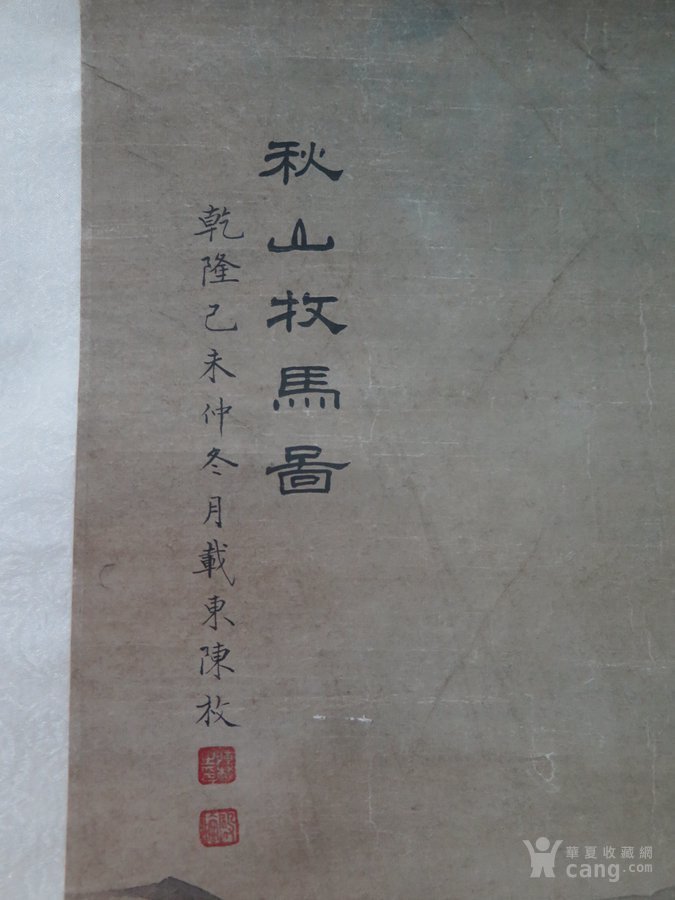 秋山牧馬啚
乾隆己未仲冬月載東陳枚
華夏收藏網
cang.com